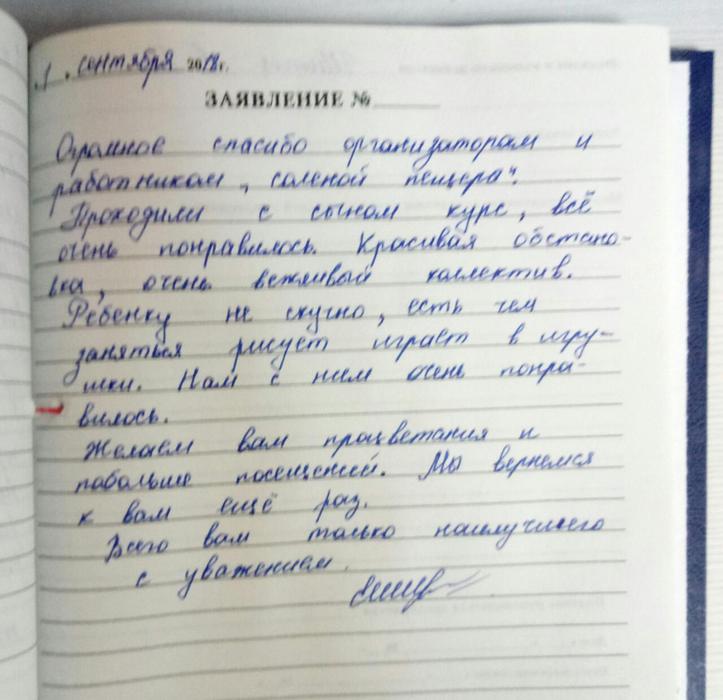 1. сентября 2018г.
ЗАЯВЛЕНИЕ №
Огромное спасибо организаторам и
работникам „соленой пещера".
Проходили с сыном курс, всё
очень понравилось. Красивая обстано-
вка, очень вежливый коллектив.
Ребенку не скучно, есть чем
заняться рисует играет в игру-
шки. Нам с ним очень понра-
вилось.
Желаем вам процветания и
побольше посещений. Мы вернемся
к вам ещё раз.
Всего вам только наилучшего
с уважением.